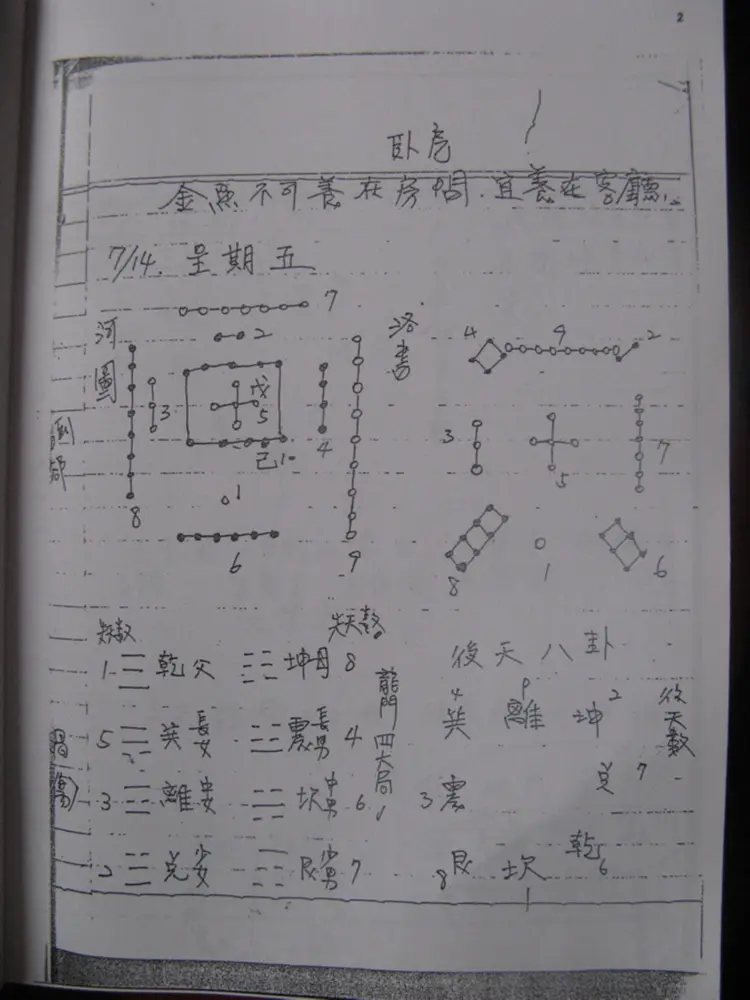 2
卧虎
金魚不可養在房間.宜養在客廳.
7/14. 星期五
河圖
7
2
8
3
戊
5
己10
4
9
1
6
洛書
4 9 2
3 5 7
8 1 6
先天數
1 乾父 坤母 8
5 巽長女 震長男 4
3 離中女 坎中男 6
2 兌少女 艮少男 7
龍門四大局
後天八卦
後天數
4巽 9離 坤2
3震 兌7
8艮 坎 乾6